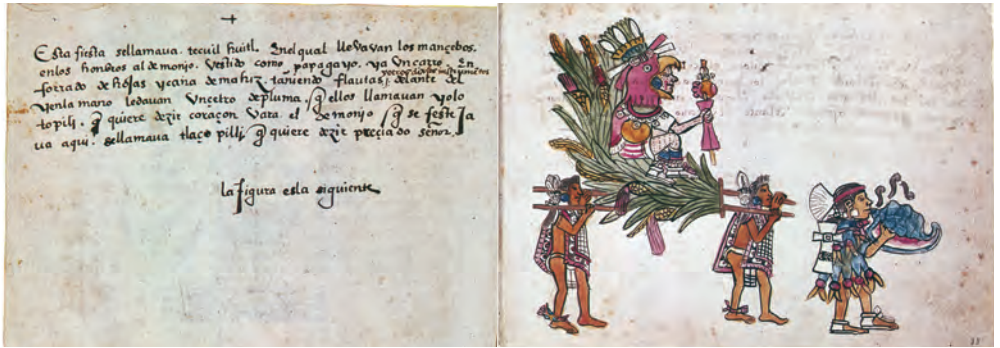 +
Esta fiesta sellamava. tecuil huitl. Enel qual llevavan los mançebos.
enlos honbros al demonjo. vestido como papagayo. ya Un carro. En
y otros instrumentos
forrado de hojas y caña de mahiz. tañiendo flautas; delante del
Yenla mano ledauan Uncetro depluma. q̃ ellos llamauan yolo
topilj. q̃ quiere dezir coraçon vara. el demonjo q̃ se festeJa
va aqui. sellamava tlaço pillj q̃ quiere dezir preçiado señor.
la figura esla siguiente